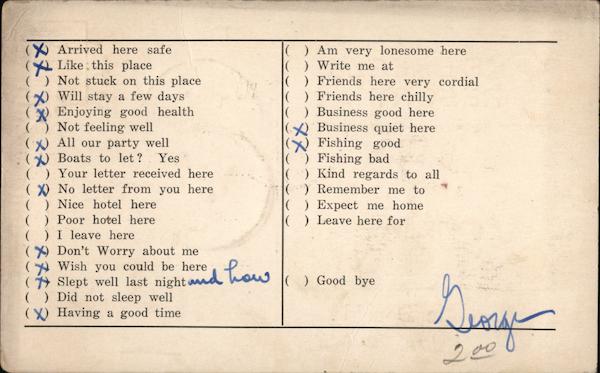 (X) Arrived here safe
(X) Like this place
( ) Not stuck on this place
(X) Will stay a few days
(X) Enjoying good health
( ) Not feeling well
(X) All our party well
(X) Boats to let? Yes
( ) Your letter received here
(X) No letter from you here
( ) Nice hotel here
( ) Poor hotel here
( ) I leave here
(X) Don't Worry about me
(X) Wish you could be here
(X) Slept well last night and how
( ) Did not sleep well
(X) Having a good time
( ) Am very lonesome here
( ) Write me at
( ) Friends here very cordial
( ) Friends here chilly
( ) Business good here
(X) Business quiet here
(X) Fishing good
( ) Fishing bad
( ) Kind regards to all
( ) Remember me to
( ) Expect me home
( ) Leave here for
( ) Good bye
George
2 00